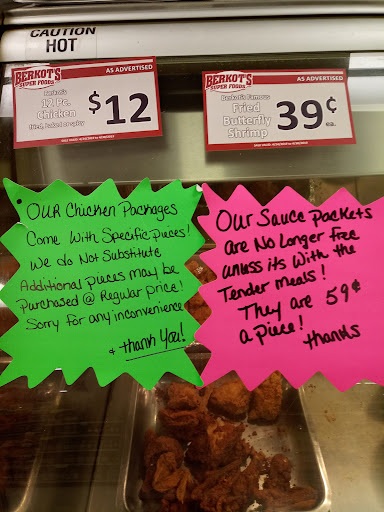 CAUTION
HOT
BERKOT'S
SUPER FOODS
AS ADVERTISED
Berkot's
12 Pc.
Chicken
fried, baked or spicy
$12
BERKOT'S
SUPER FOODS
AS ADVERTISED
Berkot's Famous
Fried
Butterfly
Shrimp
39¢
ea.
OUR Chicken Packages
Come With Specific pieces!
We do Not Substitute
Additional pieces may be
Purchased @ Regular price!
Sorry for any inconvenience
+ thank You!
Our Sauce packets
are No Longer free
unless its With the
Tender meals!
They are 59¢
a piece!
thanks